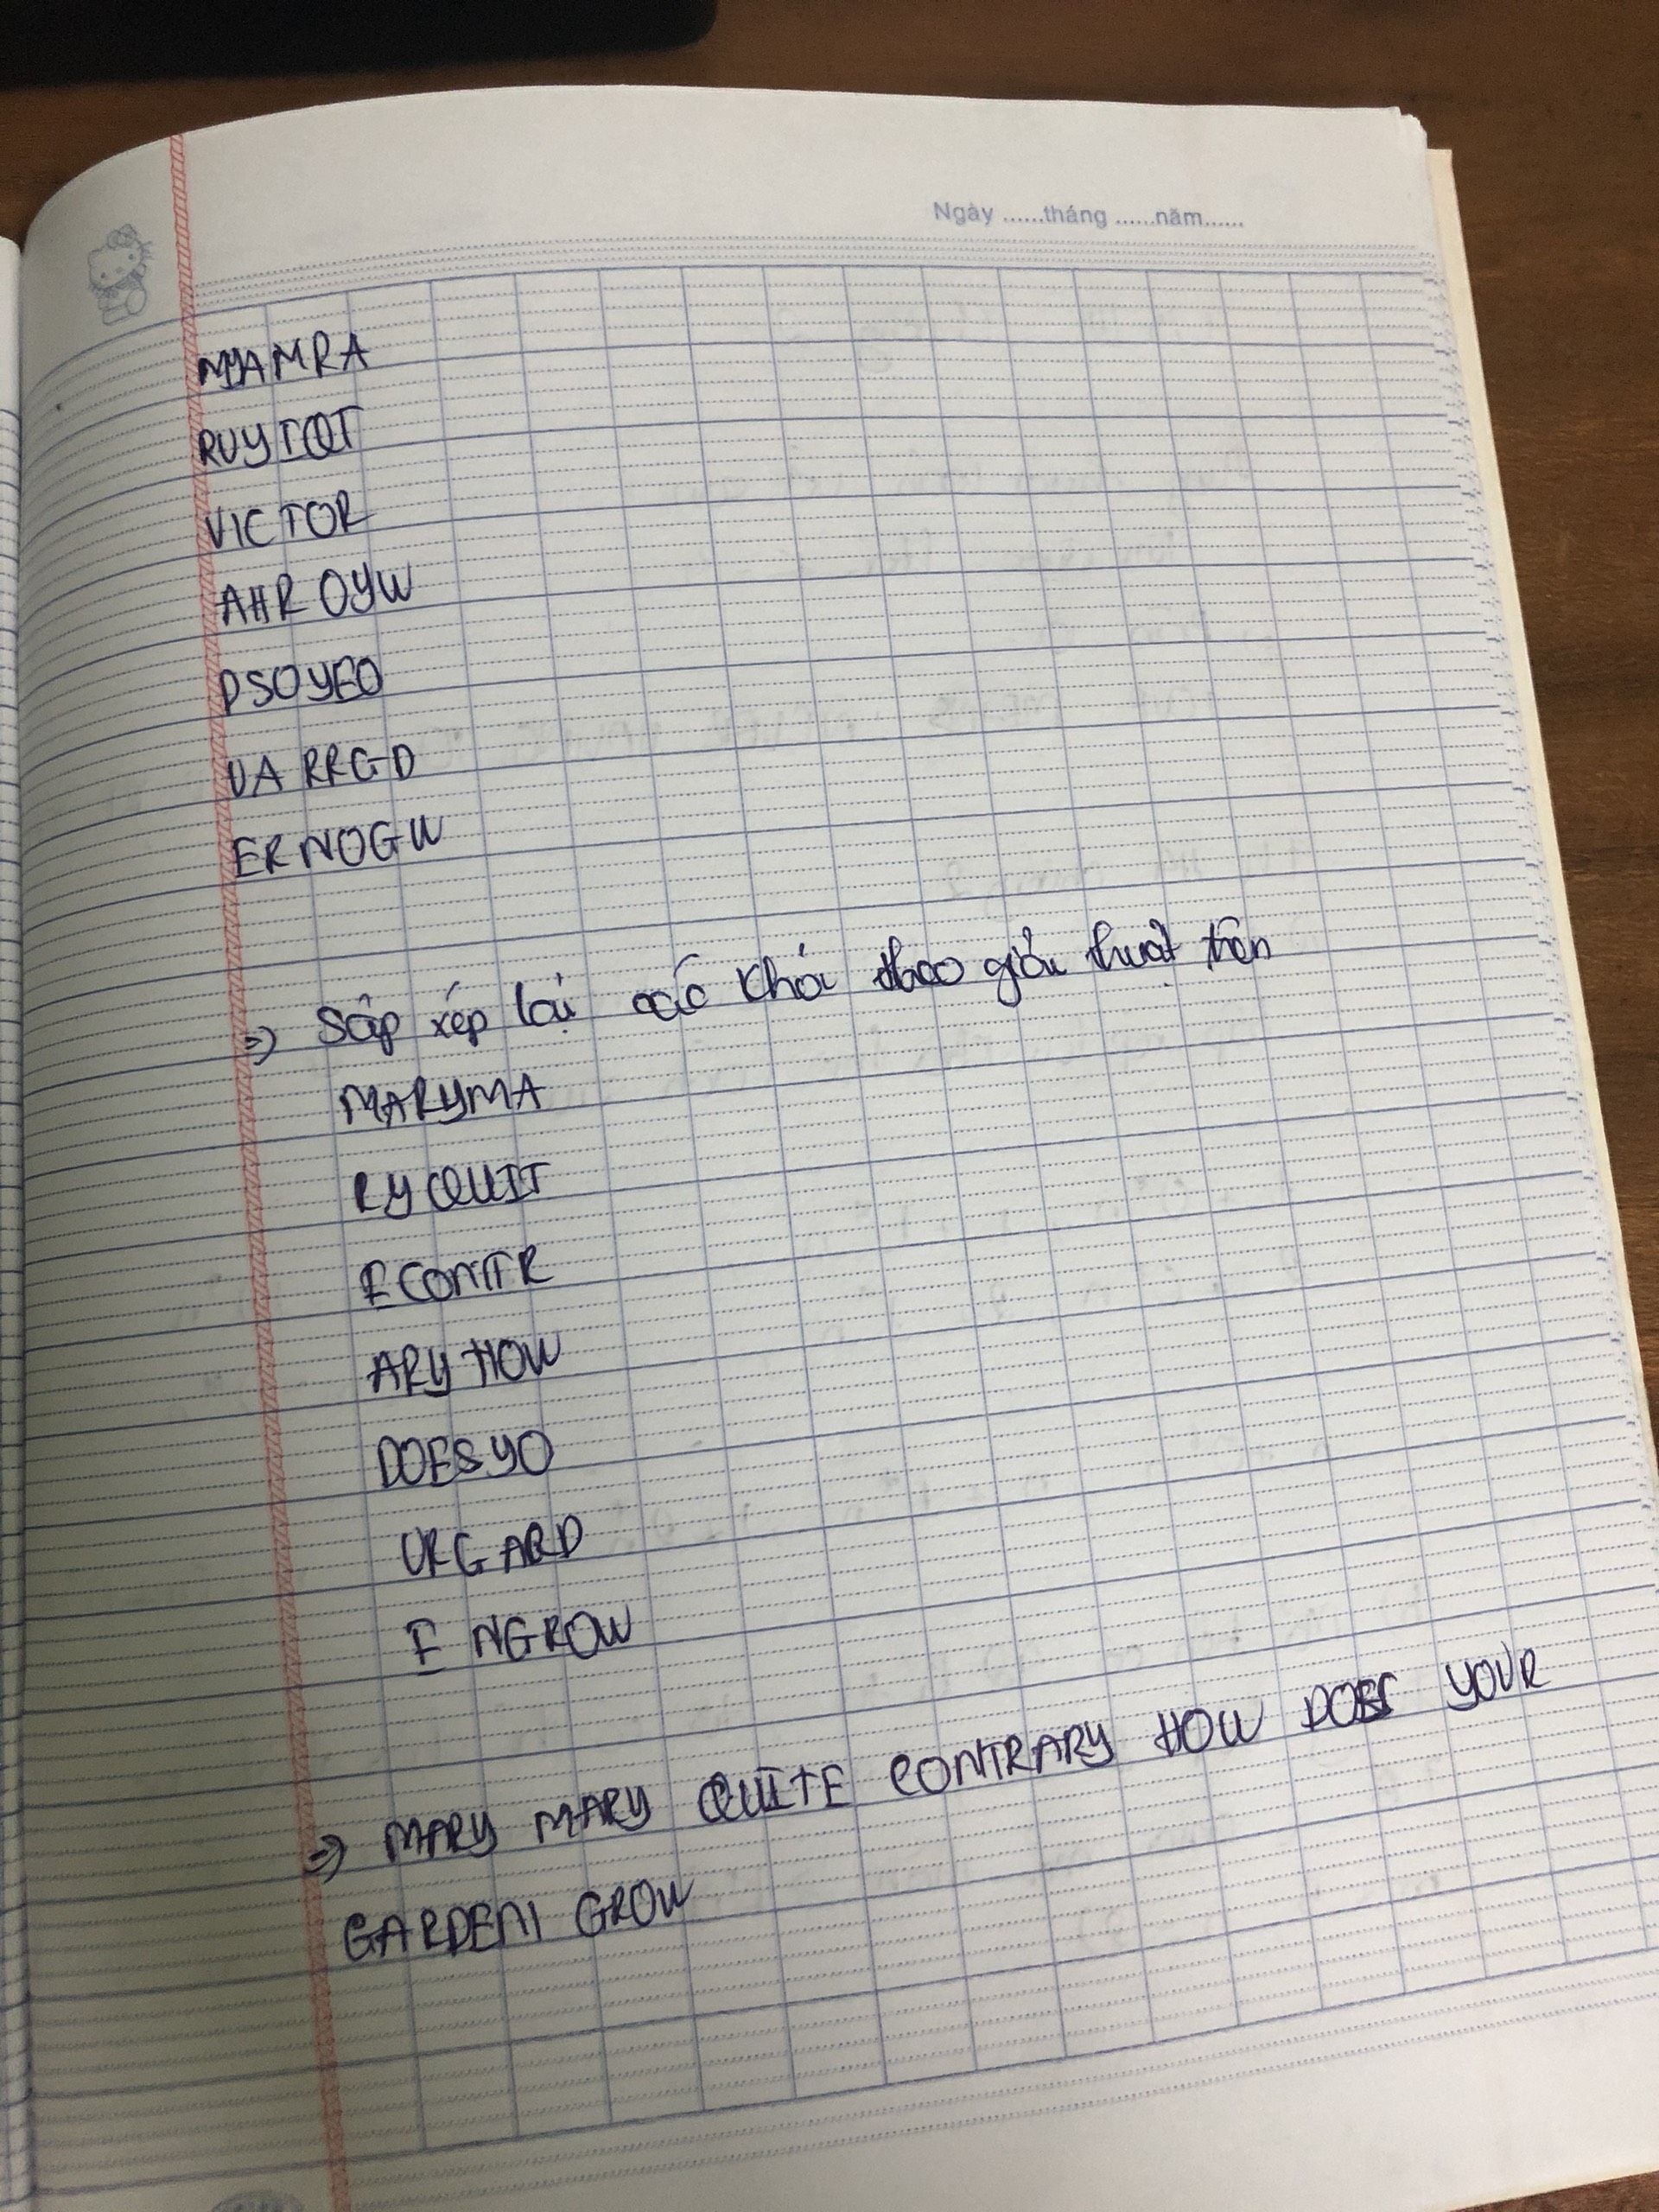 Ngày ......tháng ......năm......
MYAMRA
RUYIQT
VICTOR
AHROYW
DSOYEO
UARRGD
ERNOGW
=> Sắp xếp lại các khối theo giải thuật trên
MARYMA
RYQUIT
ECONTR
ARYHOW
DOESYO
URGARD
ENGROW
=> MARY MARY QUITE CONTRARY HOW DOES YOUR
GARDEN GROW